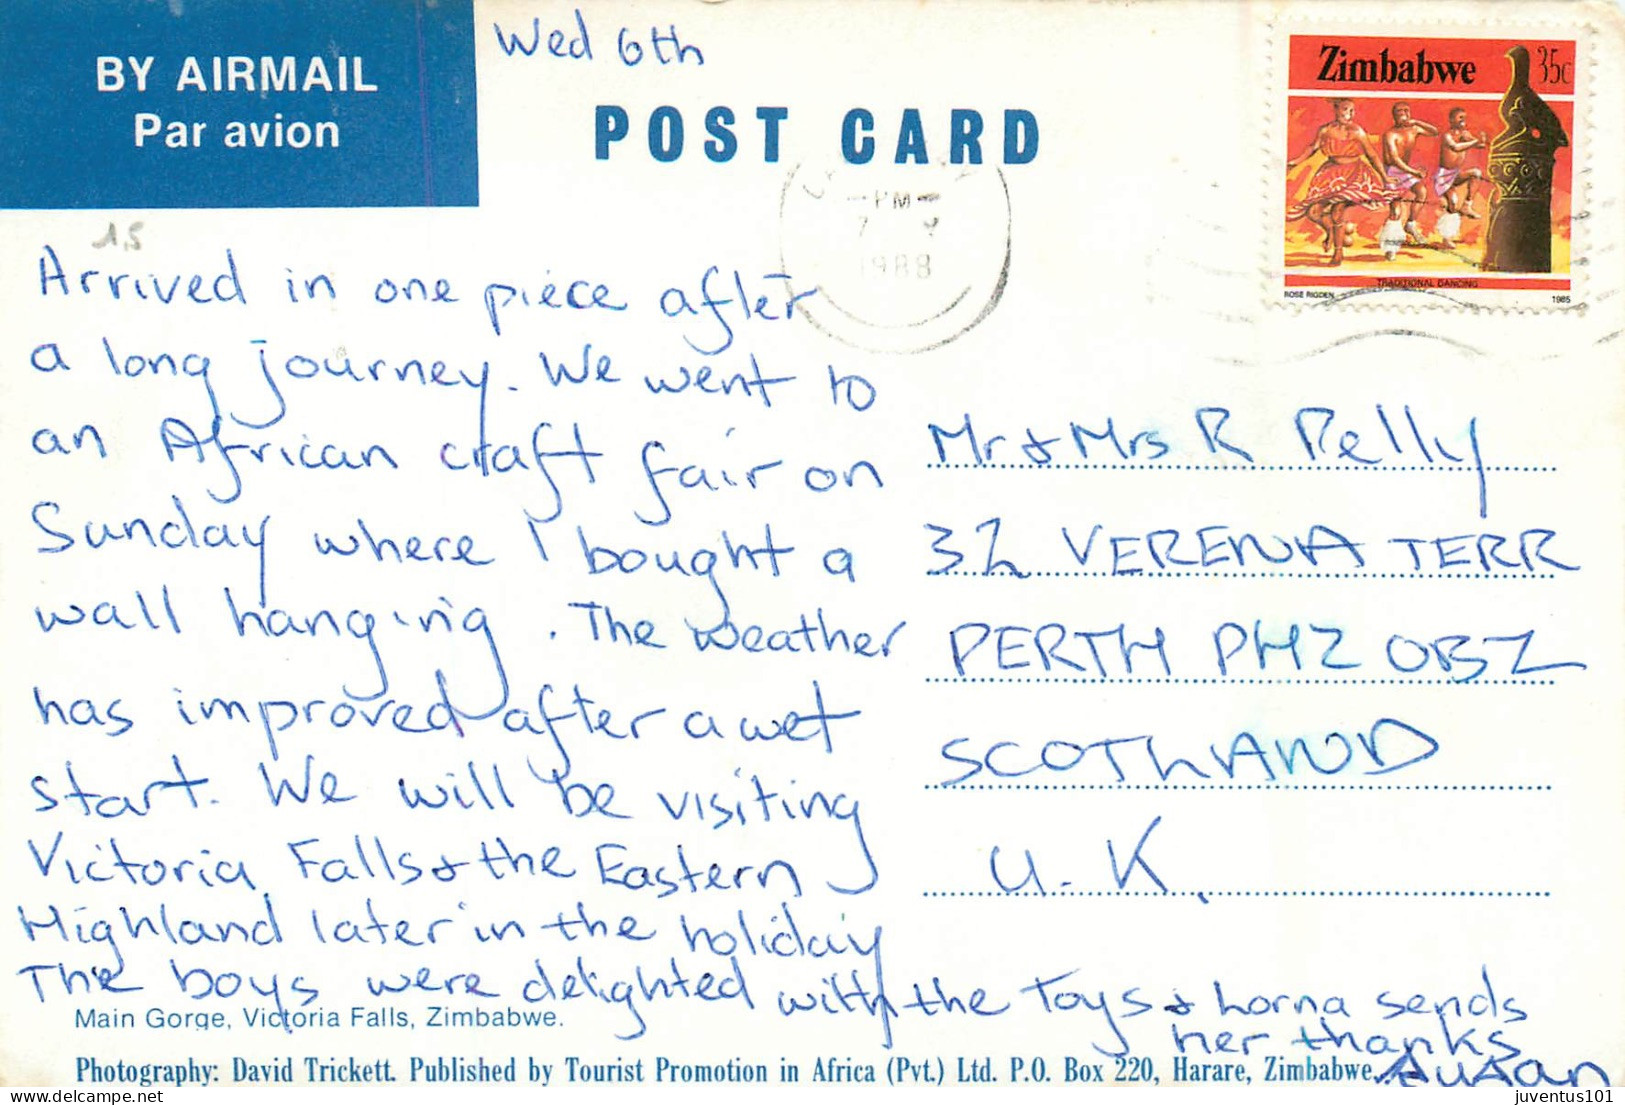 BY AIRMAIL
Par avion
Wed 6th
POST CARD
Zimbabwe 35c
TRADITIONAL DANCING
ROSE RIGDEN 1985
PM
7
1988
1,5
Arrived in one piece after
a long journey. We went to
an African craft fair on
Sunday where I bought a
wall hanging. The weather
has improved after a wet
start. We will be visiting
Victoria Falls & the Eastern
Highland later in the holiday
The boys were delighted with the Toys & Lorna sends
her thanks
Mr & Mrs R Pelly
32 VERENA TERR
PERTH PH2 0BZ
SCOTLAND
U.K.
Main Gorge, Victoria Falls, Zimbabwe.
Photography: David Trickett. Published by Tourist Promotion in Africa (Pvt.) Ltd. P.O. Box 220, Harare, Zimbabwe.
juventus101